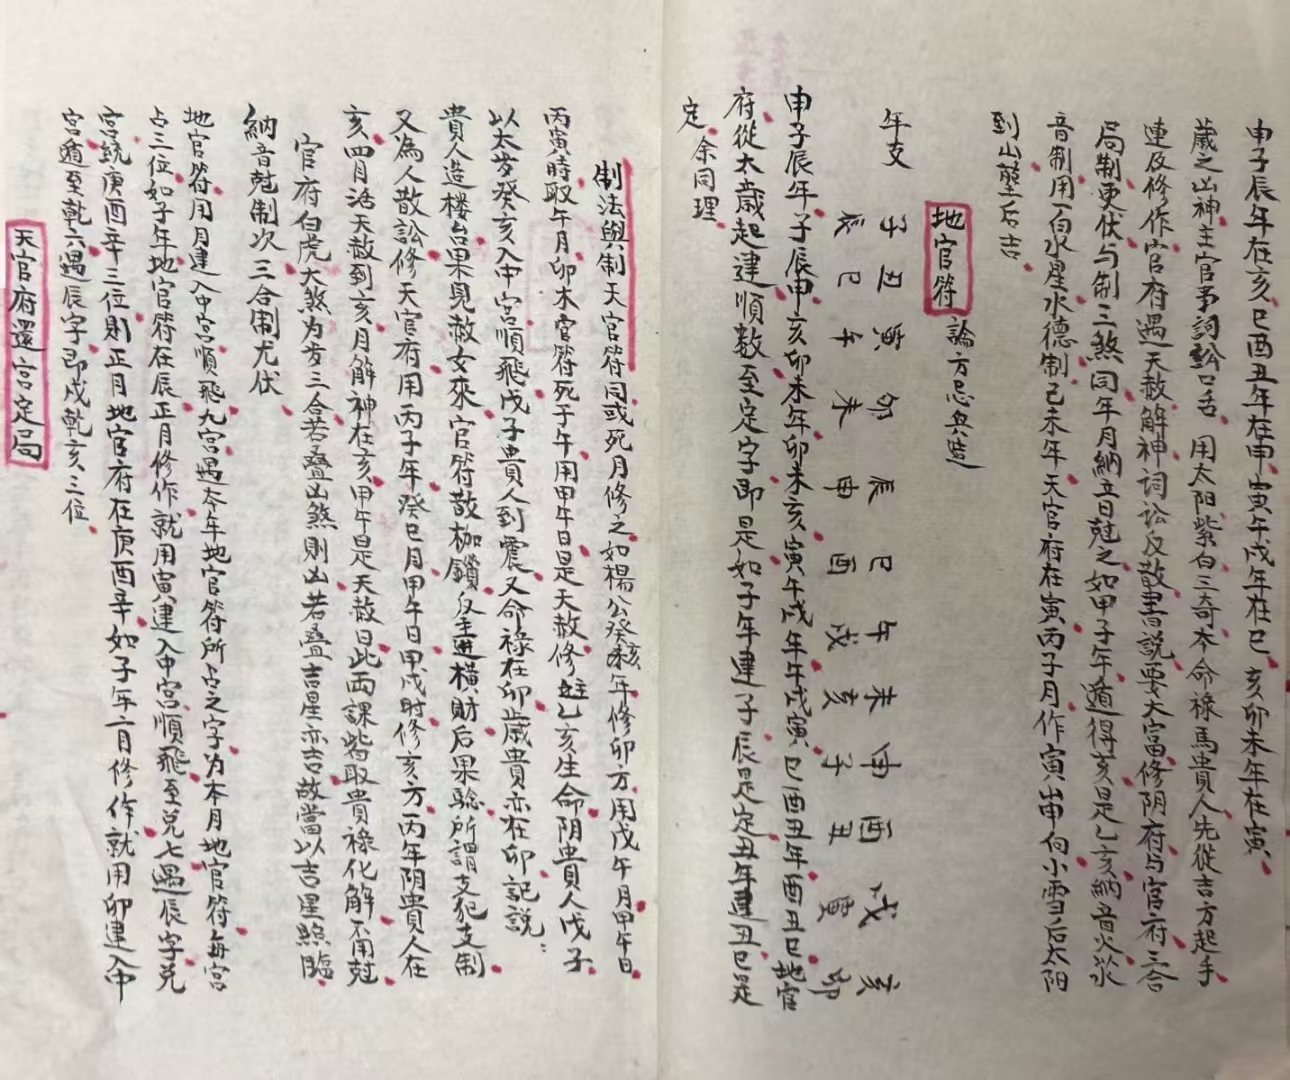 申子辰年在亥巳酉丑年在申寅午戌年在巳亥卯未年在寅
歲之凶神主官事詞訟口舌用太阳紫白三奇本命祿馬貴人先從吉方起手
連及修作官府遇天赦解神詞讼反散書說要大富修阴府与官府三合
局制更伏与制三煞同年月納音尅之如甲子年遁得亥是乙亥納音火以水
音制用一白水星水德制己未年天官府在寅丙子月作寅山申向小雪后太阳
到山塟后吉
地官符
論方忌與造
年支子丑寅卯辰巳午未申酉戌亥
辰巳午未申酉戌亥子丑寅卯
申子辰年子辰申亥卯未年卯未亥寅午戌年午戌寅巳酉丑年酉丑巳地官
府從太歲起建順数至定字即是如子年建子辰是定丑年建丑巳是
定余同理
制法與制天官符同或死月修之如楊公癸亥年修卯方用戊午月甲午日
丙寅時取午月卯木官符死于午用甲午日是天赦修主乙亥生命阴貴人戊子
以太岁癸亥入中宮順飛戊子貴人到震又命祿在卯歲貴亦在卯記説
貴人造楼台果見赦文來官符散枷鎖反主進橫財后果驗所謂支犯支制
又為人散訟修天官府用丙子年癸巳月甲午日甲戌时修亥方丙年阴貴人在
亥四月活天赦到亥月解神在亥甲午是天赦日此両課皆取貴祿化解不用尅
官府白虎大煞为岁三合若叠凶煞則凶若叠吉星亦吉故當以吉星照臨
納音尅制次三合制尤伏
地官符用月建入中宮順飛九宮遇本年地官符所占之字为本月地官符每宮
占三位如子年地官符在辰正月修作就用寅建入中宮順飛至兑七遇辰字兑
宮統庚酉辛三位則正月地官府在庚酉辛如子年二月修作就用卯建入中
宮遁至乾六遇辰字即戌乾亥三位
天官府還宮定局